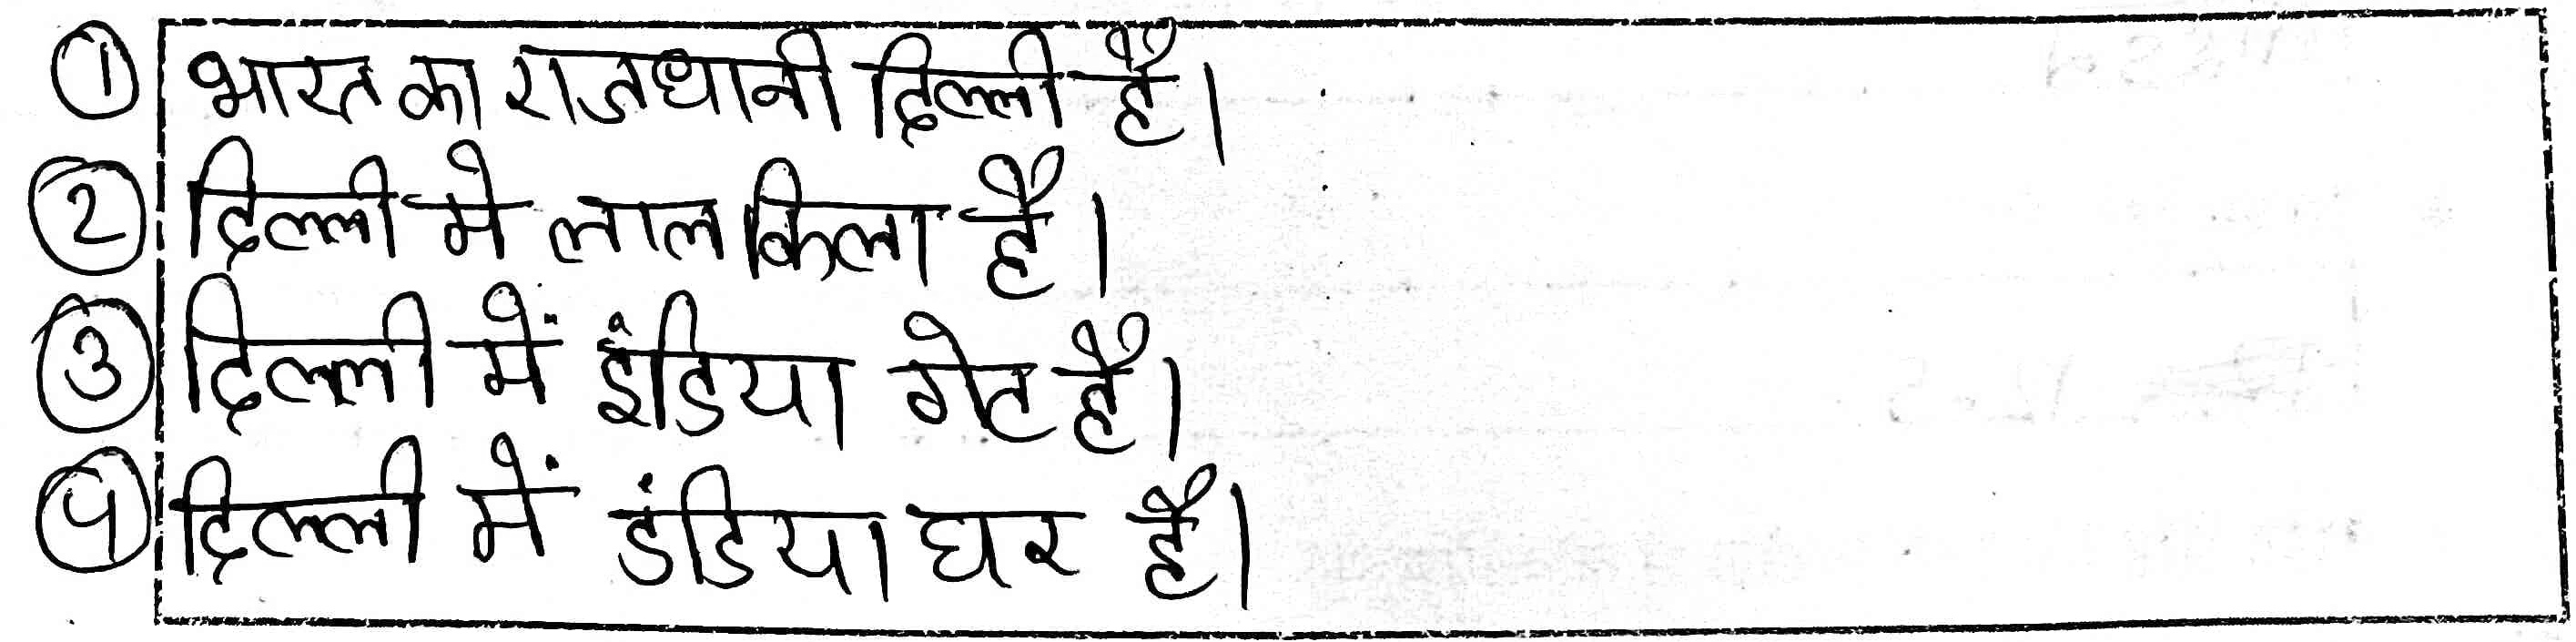 ① भारत का राजधानी दिल्ली है।
② दिल्ली मे लाल किला है।
③ दिल्ली में इंडिया गेट है।
④ दिल्ली में डंडिया घर है।